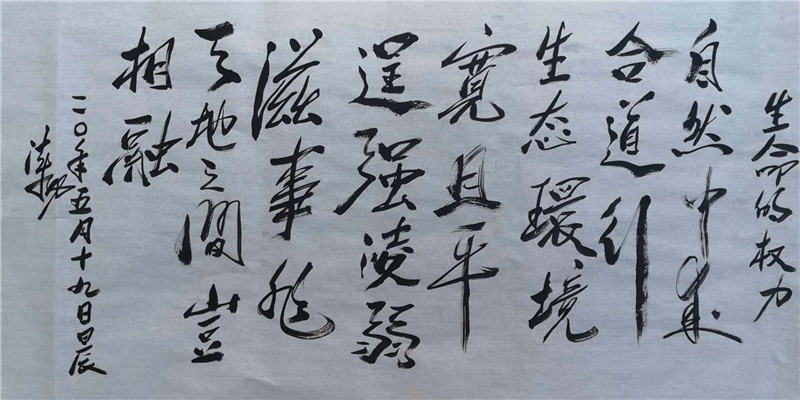 生命的权力
自然中来
合道行
生态環境
寬且平
逞强凌弱
滋事非
天地之間豈
相融
二〇年五月十九日晨